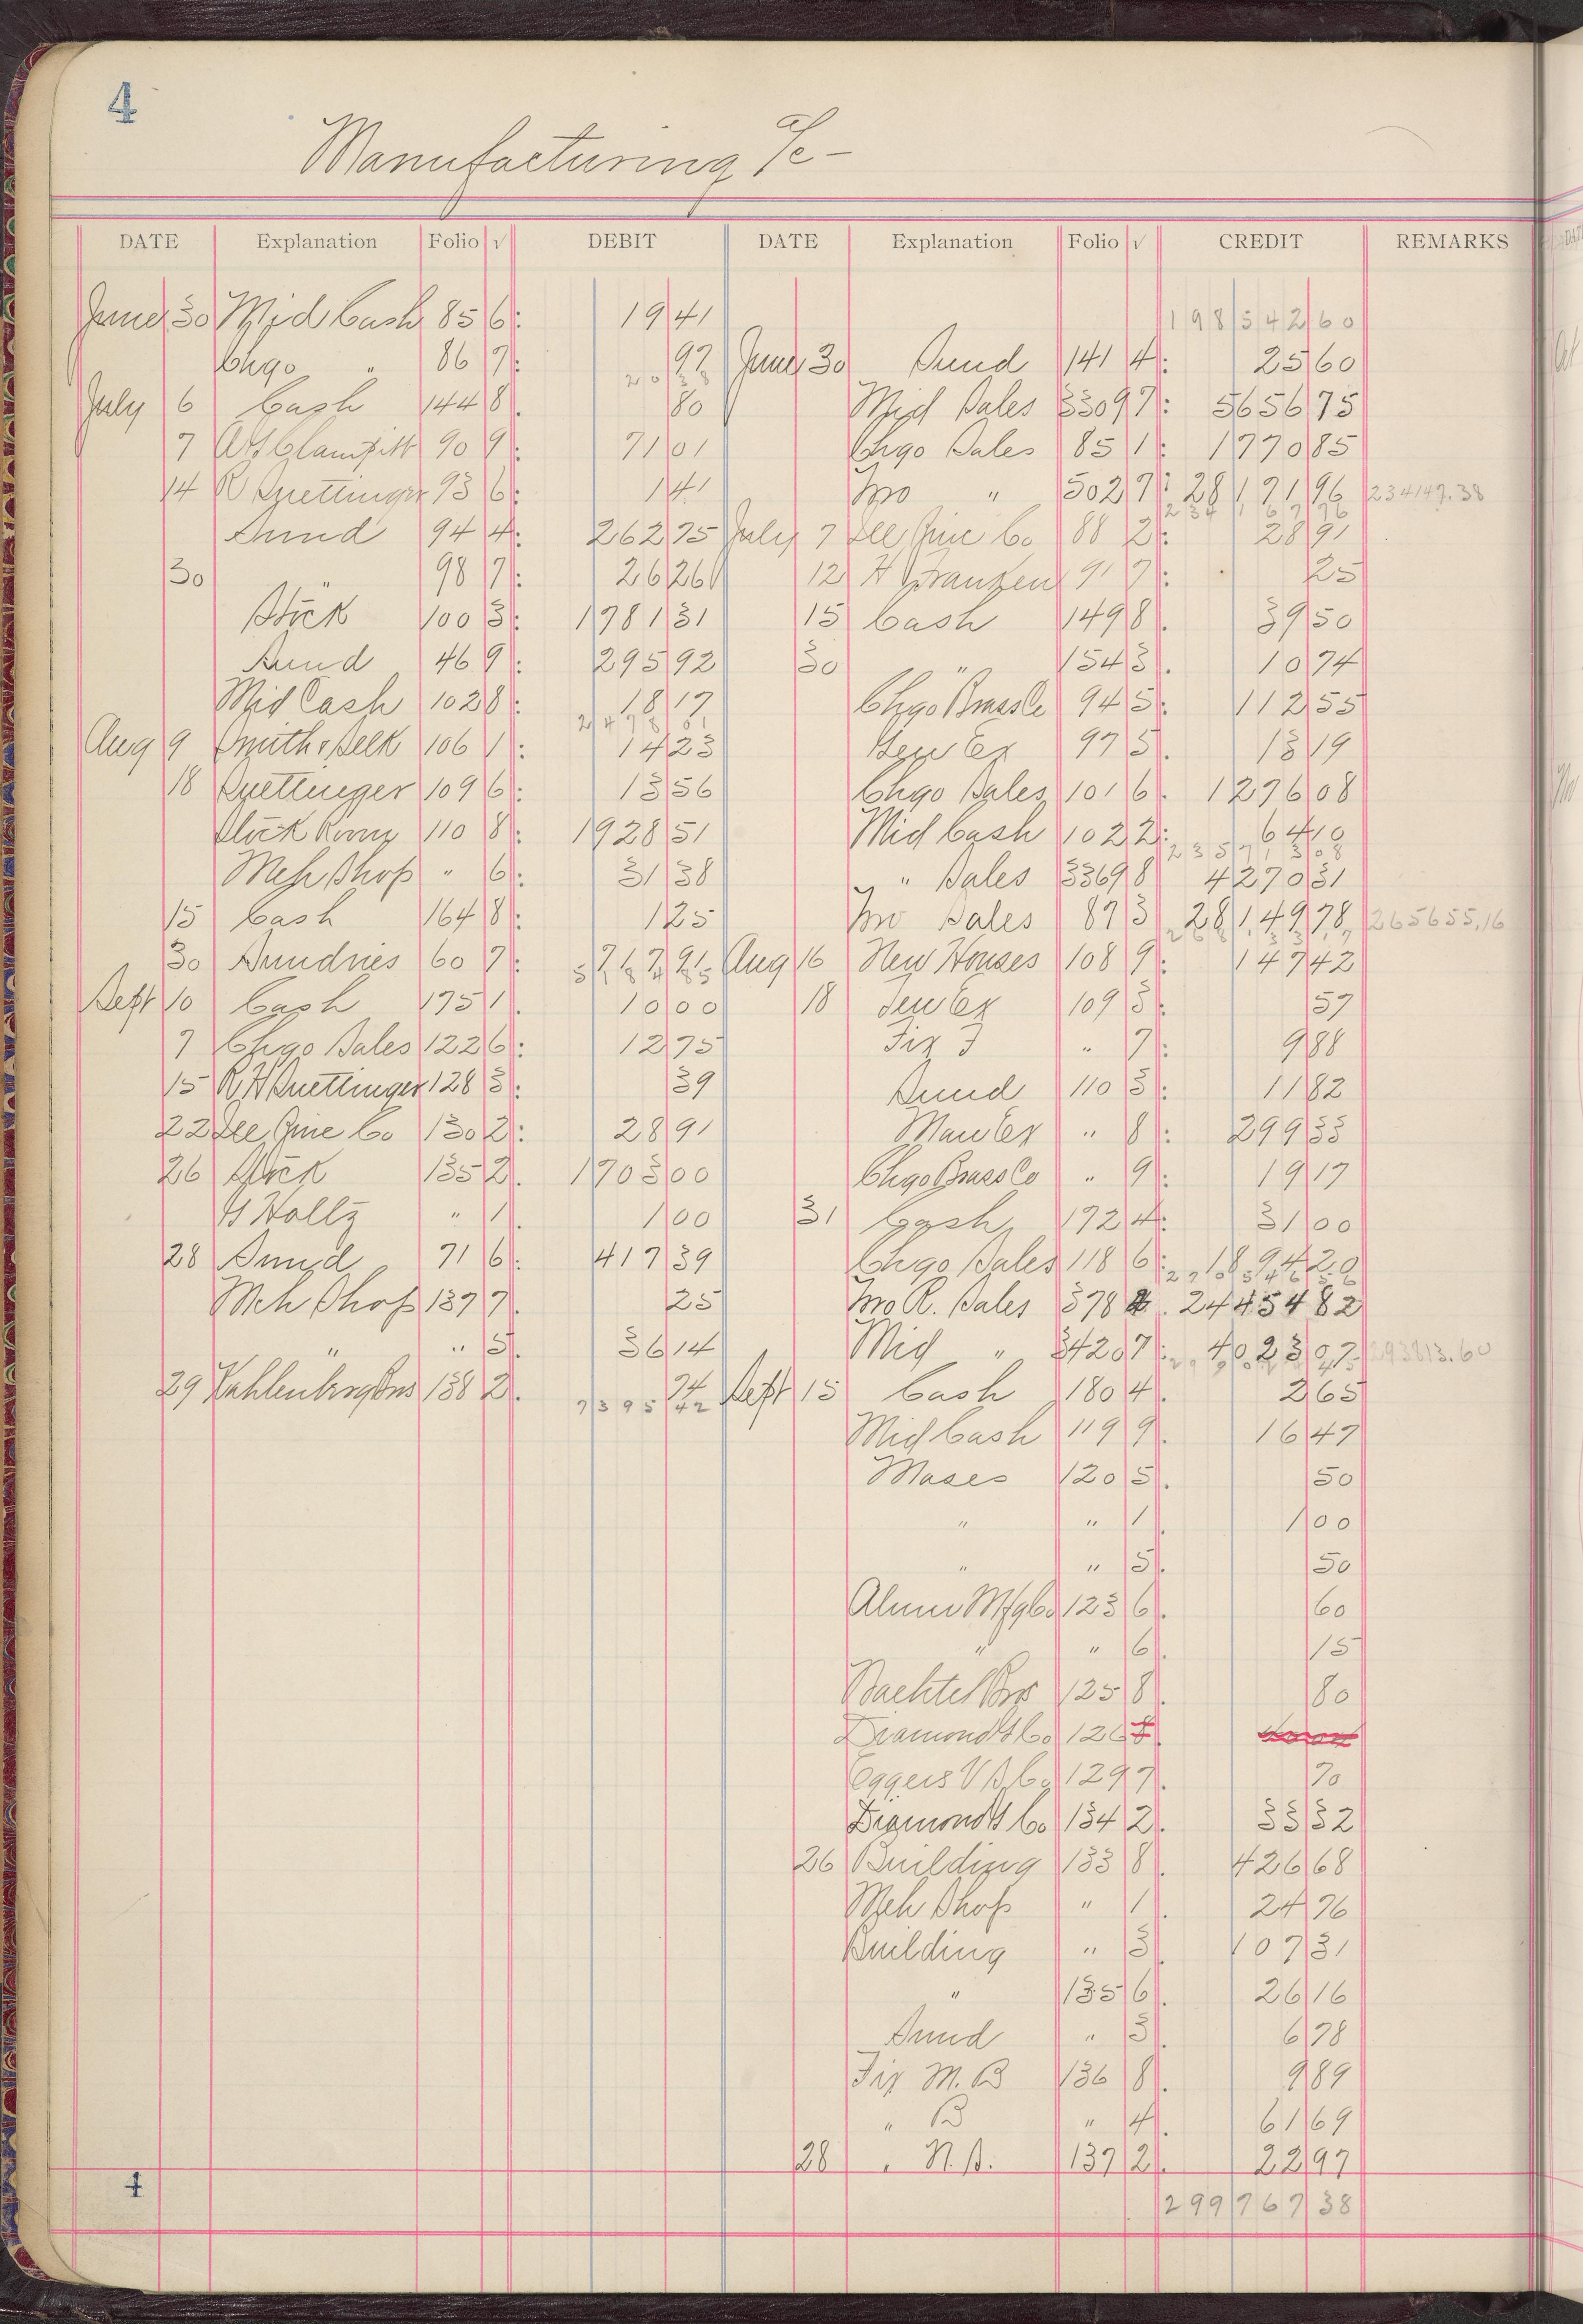 4
Manufacturing a/c -
DATE Explanation Folio √ DEBIT DATE Explanation Folio √ CREDIT REMARKS
June 30 Mid Cash 85 6: 19 41 198 542 60
Chgo " 86 7: 97 June 30 Sund 141 4: 25 60
20 38
July 6 Cash 144 8. 80 Mid Sales 3309 7: 5656 75
7 90 9: 71 01 Chgo Sales 85 1: 1770 85
14 R Suettinger 93 6: 1 41 Mo " 502 7: 28 171 96 234147.38
234 167 76
Sund 94 4: 262 75 July 7 Ill Zinc Co 88 2: 28 91
30 " 98 7: 26 26 12 H Franzen 91 7: 25
Stock 100 3: 1781 31 15 Cash 149 8. 39 50
Sund 46 9: 295 92 30 " 154 3. 10 74
Mid Cash 102 8: 18 17 Chgo Brass Co 94 5: 112 55
2478 01
Aug 9 Smith & Selk 106 1: 14 23 Gen Ex 97 5. 13 19
18 Suettinger 109 6: 13 56 Chgo Sales 101 6. 1276 08
Stock Room 110 8: 1928 51 Mid Cash 102 2: 64 10
235 713 08
Meh Shop " 6: 31 38 " Sales 3369 8 4270 31
15 Cash 164 8: 1 25 Mo Sales 87 3 28 149 78 265655.16
30 Sundries 60 7: 717 91 Aug 16 New Houses 108 9: 147 42
5184 85
Sept 10 Cash 175 1. 10 00 18 Gen Ex 109 3: 57
7 Chgo Sales 122 6: 12 75 Fix F " 7: 9 88
15 R H Suettinger 128 3: 39 Sund 110 3: 11 82
22 Ill Zinc Co 130 2: 28 91 Man Ex " 8: 299 33
26 Stock 135 2. 1703 00 Chgo Brass Co " 9: 19 17
G Holtz " 1. 1 00 31 Cash 172 4: 31 00
28 Sund 71 6: 417 39 Chgo Sales 118 6: 1894 20
270 546 56
Meh Shop 137 7. 25 Mo R. Sales 378 4. 24 454 82
" " 5. 36 14 Mid " 3420 7: 4023 07 293813.60
29 Kahlenberg Bros 138 2. 74 Sept 15 Cash 180 4. 2 65
7395 42
Mid Cash 119 9. 16 47
Moses 120 5. 50
" " 1. 1 00
" " 5. 50
Alum Mfg Co 123 6. 60
" " 6. 15
Bachtel Bros 125 8. 80
Diamond 126
Eggers V S Co 129 7. 70
Diamond Co 134 2. 33 32
26 Building 133 8. 426 68
Meh Shop " 1. 24 76
Building " 3. 107 31
" 135 6. 26 16
Sund " 3. 6 78
Fix M.B 136 8. 9 89
" B " 4. 61 69
28 " N.S. 137 2. 22 97
4
299 767 38